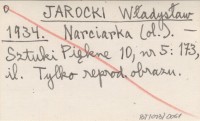 JAROCKI Władysław
1934. Narciarka (ol.). —
Sztuki Piękne 10, nr 5: 173,
il. Tylko reprod. obrazu.